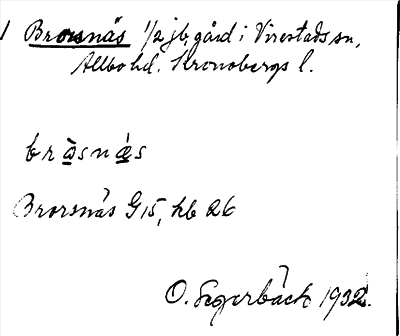 1 Brorsnäs 1/2 jb. gård i Virestads sn,
Allbo hd. Kronobergs l.
bròsnæ̀s
Brorsnäs G 15, hb 26
O. Segerbäck 1932.